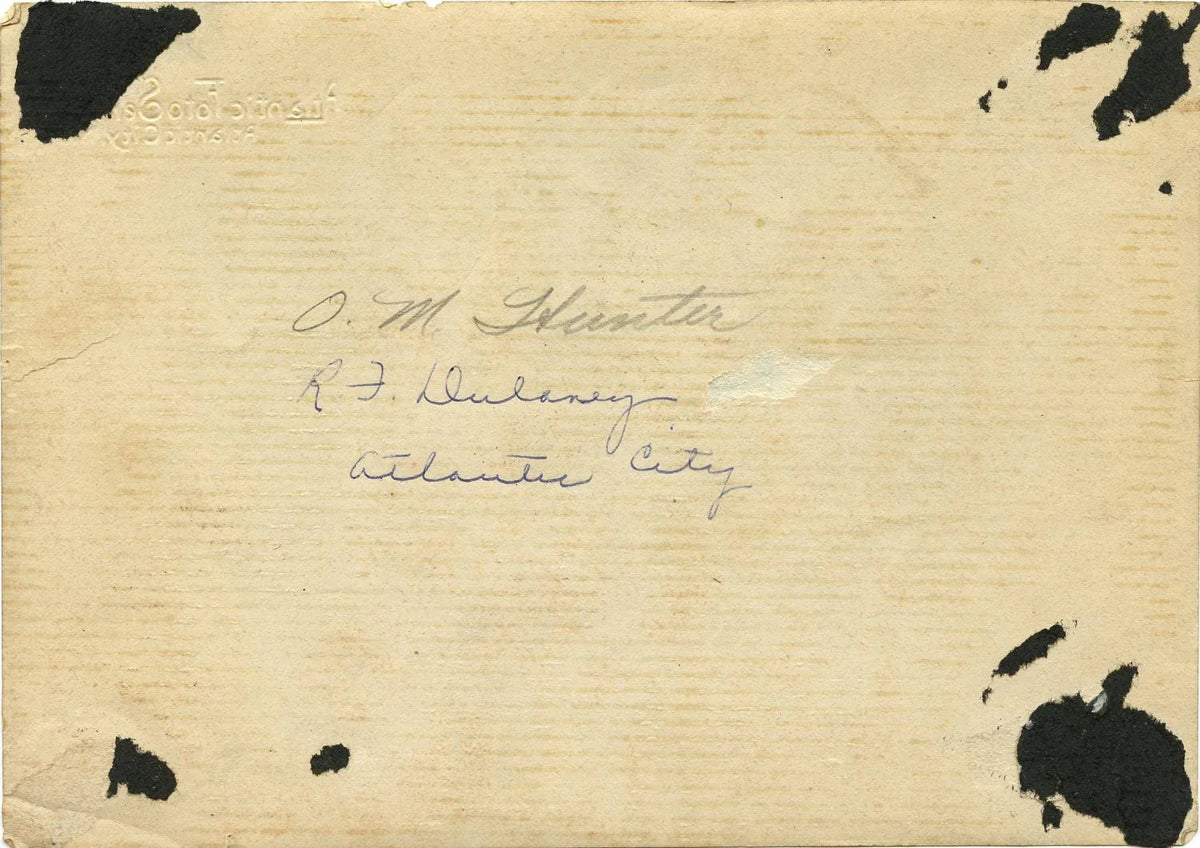 Atlantic Foto Ser
Atlantic City.
O. M. Hunter
R. F. Dulaney
Atlantic City